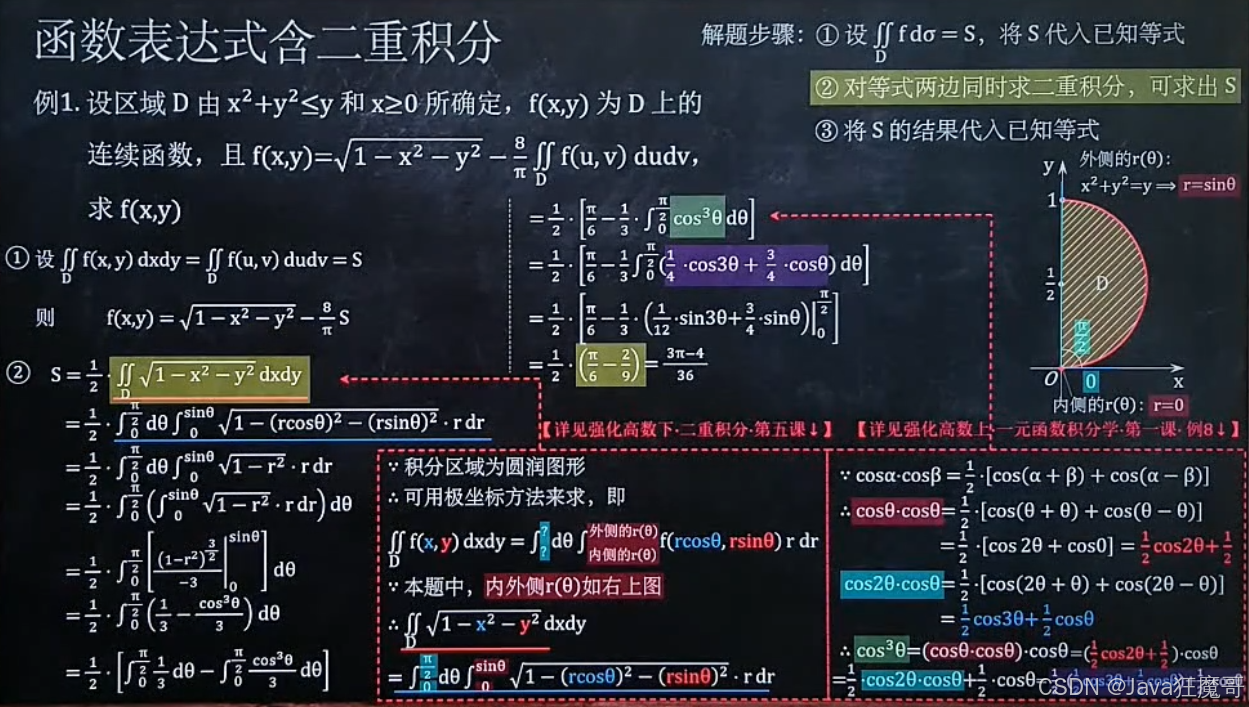 函数表达式含二重积分
解题步骤：① 设 ∬_D f dσ = S，将 S 代入已知等式
② 对等式两边同时求二重积分，可求出 S
③ 将 S 的结果代入已知等式
例1. 设区域 D 由 x²+y²≤y 和 x≥0 所确定，f(x,y) 为 D 上的
连续函数，且 f(x,y)=√(1−x²−y²) − 8/π ∬_D f(u,v) dudv，
求 f(x,y)
① 设 ∬_D f(x,y) dxdy = ∬_D f(u,v) dudv = S
则 f(x,y) = √(1−x²−y²) − 8/π S
② S = 1/2 · ∬_D √(1−x²−y²) dxdy
= 1/2 · ∫_0^{π/2} dθ ∫_0^{sinθ} √(1−(rcosθ)²−(rsinθ)²) · r dr
= 1/2 · ∫_0^{π/2} dθ ∫_0^{sinθ} √(1−r²) · r dr
= 1/2 · ∫_0^{π/2} (∫_0^{sinθ} √(1−r²) · r dr) dθ
= 1/2 · ∫_0^{π/2} [(1−r²)^{3/2}/−3 |_0^{sinθ}] dθ
= 1/2 · ∫_0^{π/2} (1/3 − cos³θ/3) dθ
= 1/2 · [∫_0^{π/2} 1/3 dθ − ∫_0^{π/2} cos³θ/3 dθ]
= 1/2 · [π/6 − 1/3 · ∫_0^{π/2} cos³θ dθ]
= 1/2 · [π/6 − 1/3 ∫_0^{π/2} (1/4 ·cos3θ + 3/4 ·cosθ) dθ]
= 1/2 · [π/6 − 1/3 · (1/12 ·sin3θ + 3/4 ·sinθ)|_0^{π/2}]
= 1/2 · (π/6 − 2/9) = (3π−4)/36
y
外侧的r(θ)：
x²+y²=y ⟹ r=sinθ
1
1/2
D
π/2
O
0
x
内侧的r(θ)：r=0
【详见强化高数下·二重积分·第五课↓】
【详见强化高数上·一元函数积分学·第一课·例8↓】
∵ 积分区域为圆润图形
∴ 可用极坐标方法来求，即
∬_D f(x,y) dxdy = ∫_?^? dθ ∫_{内侧的r(θ)}^{外侧的r(θ)} f(rcosθ,rsinθ) r dr
∵ 本题中，内外侧r(θ)如右上图
∴ ∬_D √(1−x²−y²) dxdy
= ∫_0^{π/2} dθ ∫_0^{sinθ} √(1−(rcosθ)²−(rsinθ)²) · r dr
∵ cosα·cosβ = 1/2 ·[cos(α + β) + cos(α − β)]
∴ cosθ·cosθ = 1/2 ·[cos(θ + θ) + cos(θ − θ)]
= 1/2 ·[cos 2θ + cos0] = 1/2 cos2θ + 1/2
cos2θ·cosθ = 1/2 ·[cos(2θ + θ) + cos(2θ − θ)]
= 1/2 cos3θ + 1/2 cosθ
∴ cos³θ=(cosθ·cosθ)·cosθ=(1/2 cos2θ + 1/2)·cosθ
= 1/2 ·cos2θ·cosθ + 1/2 ·cosθ=
CSDN @Java狂魔哥